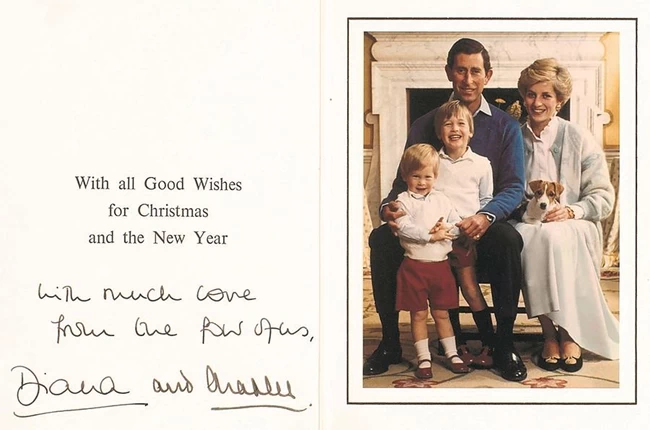 With all Good Wishes
for Christmas
and the New Year
with much love
from the four of us,
Diana and Charles.